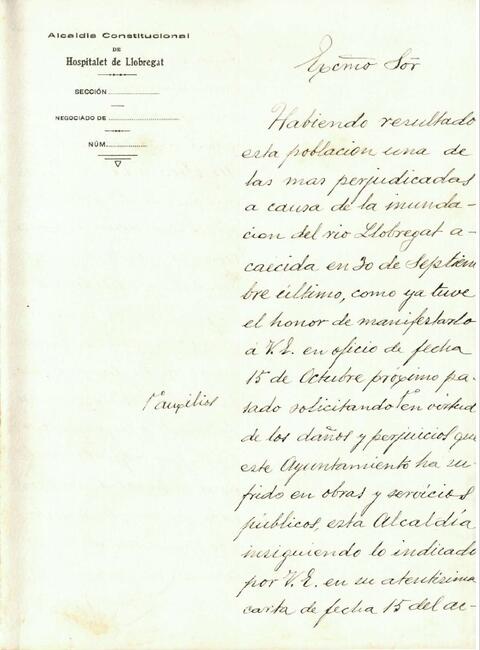 Alcaldía Constitucional
DE
Hospitalet de Llobregat
SECCIÓN
NEGOCIADO DE
NÚM.
Excmo Sor
Habiendo resultado
esta poblacion una de
las mas perjudicadas
a causa de la inunda-
cion del rio Llobregat a-
caecida en 30 de Septiem
bre último, como ya tuve
el honor de manifestarlo
á V.E. en oficio de fecha
15 de Octubre próximo pa-
sado solicitando en virtud
de los daños y perjuicios que
este Ayuntamiento ha su-
frido en obras y servicios
públicos, esta Alcaldía
insiguiendo lo indicado
por V.E. en su atentísima
carta de fecha 15 del ac-
auxilios